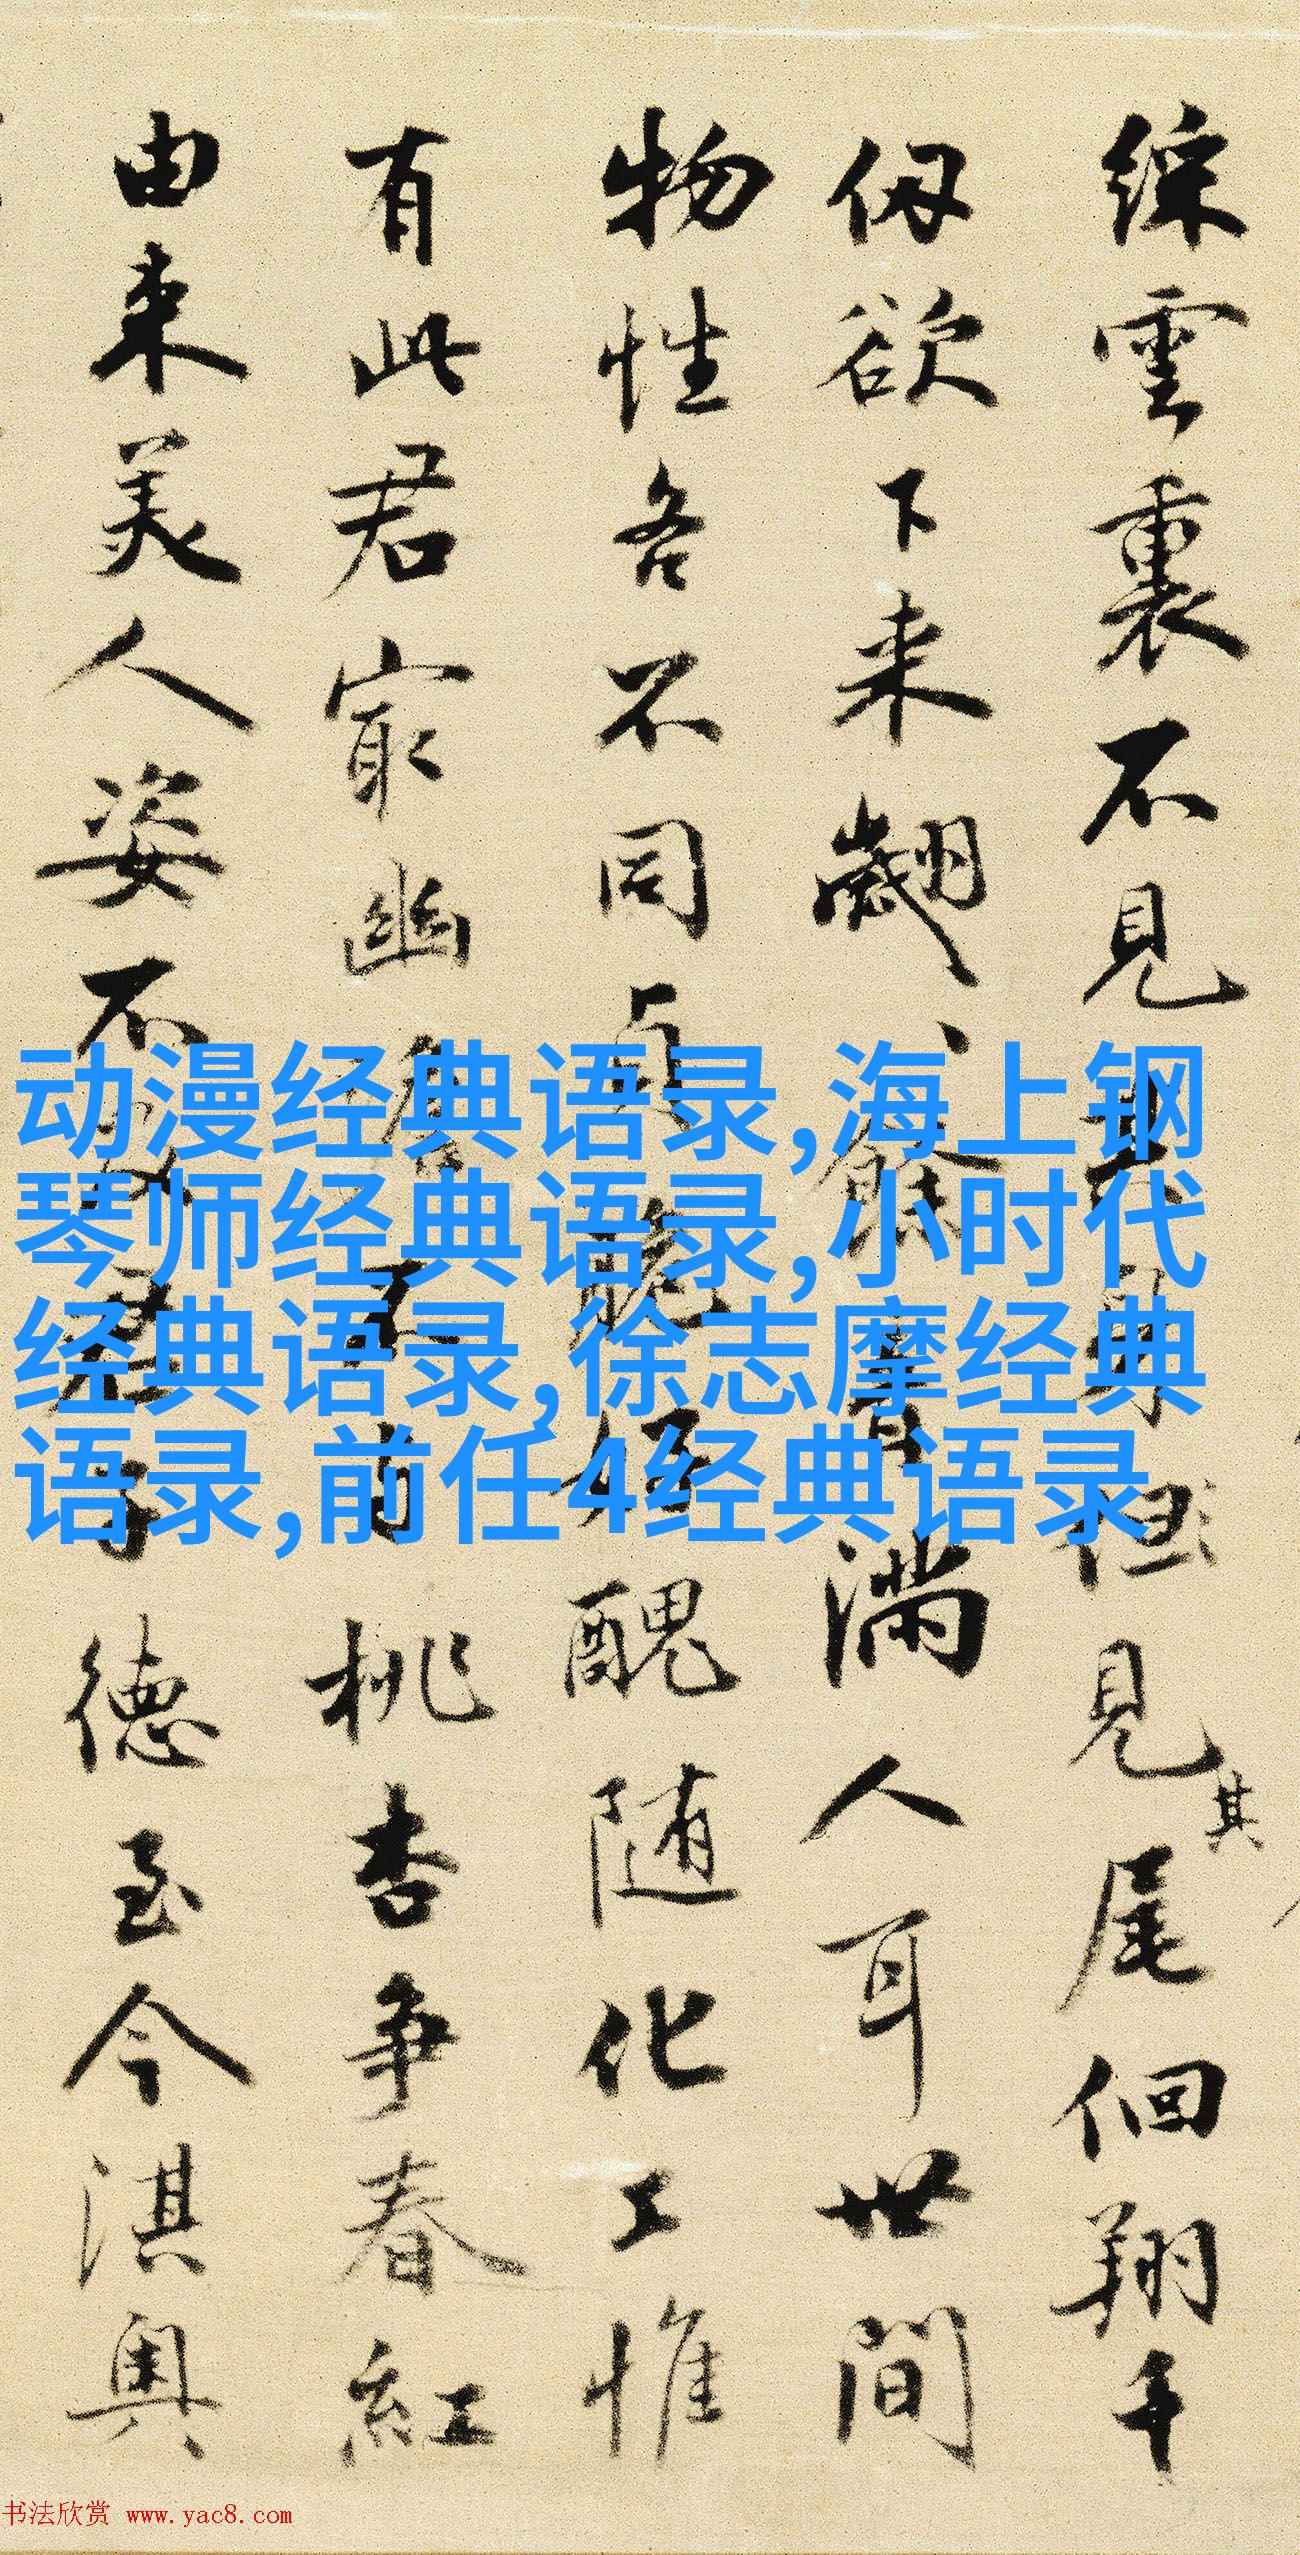 綵雲裏不見其身但見其尾佪翔千
仭欲下来翽、餘音滿人耳世間
物性各不同貞脆妍醜随化工惟
有此君㝡幽不桃杏争春紅
由来美人姿不君子德至今淇奥
动漫经典语录,海上钢
琴师经典语录,小时代
经典语录,徐志摩经典
语录,前任4经典语录
书法欣赏 www.yac8.com